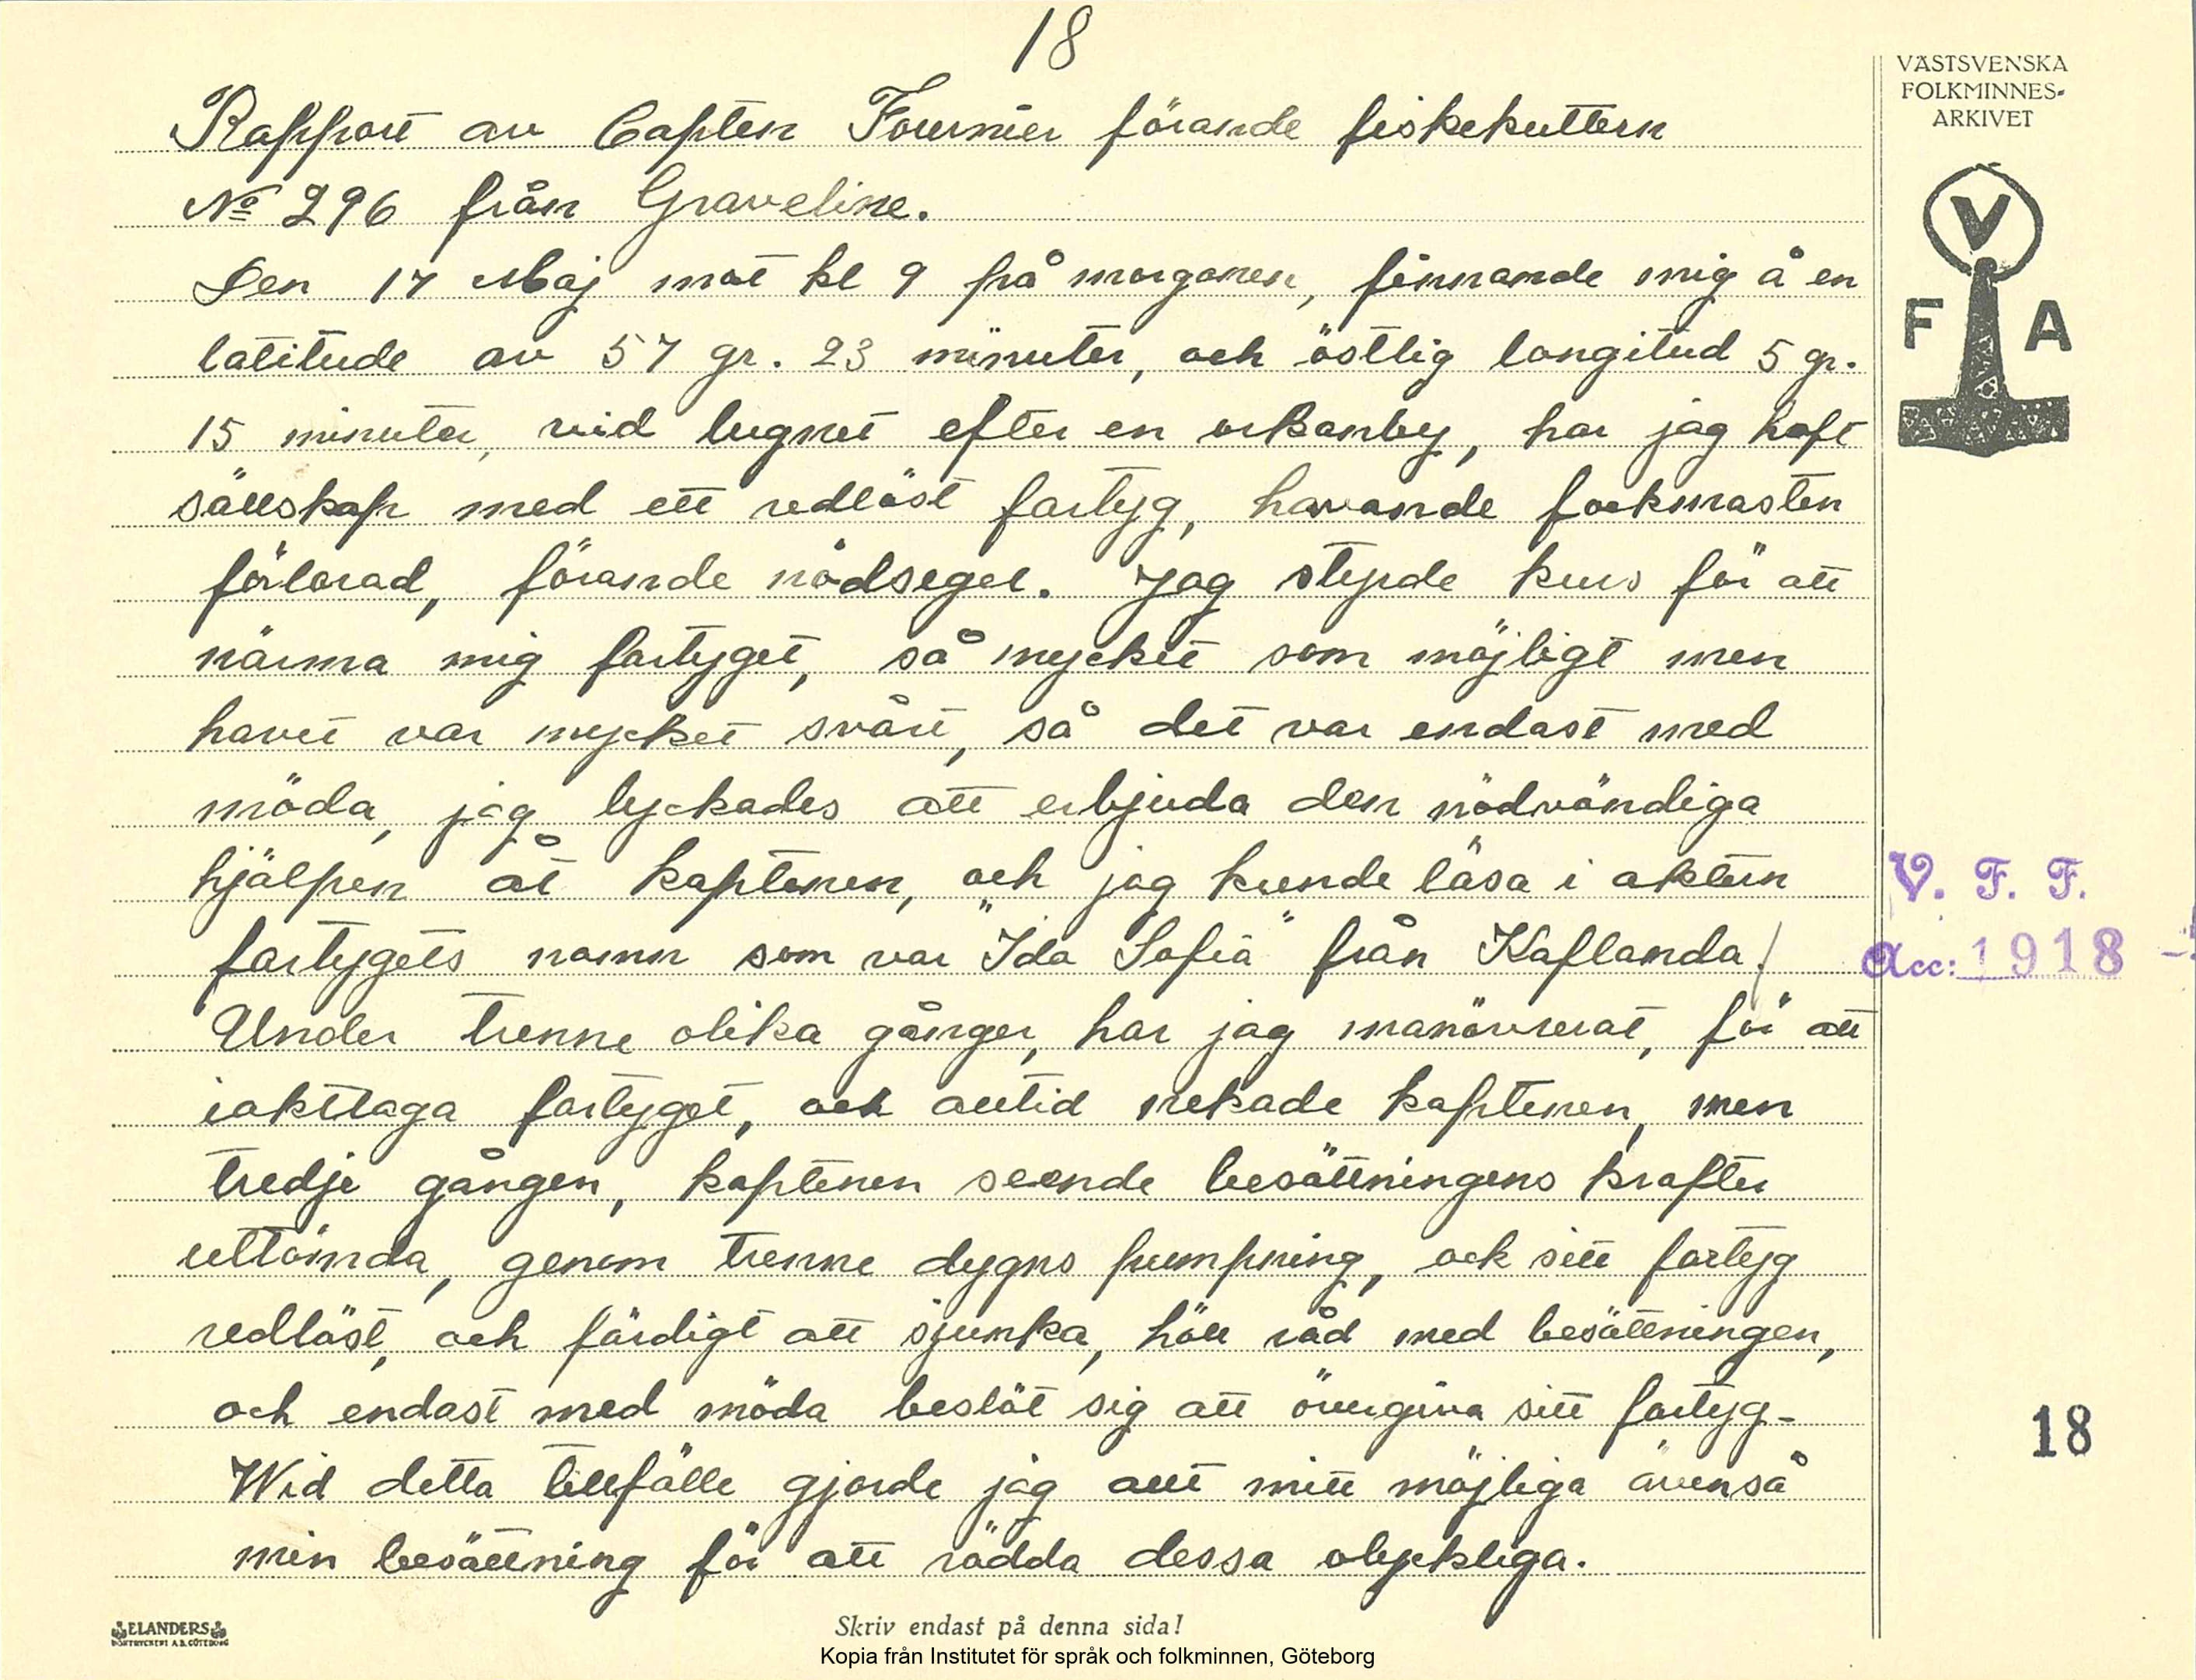 18
Rapport av Capten Fournier förande fiskekuttern
No 296 från Graveline.
Den 17 Maj mot kl 9 på morgonen, finnande mig å en
latitude av 57 gr. 23 minuter, och östlig longitud 5 gr.
15 minuter, vid lugnet efter en orkanby, har jag haft
sällskap med ett redlöst fartyg, havande fockmasten
förlorad, förande nödsegel. Jag styrde kurs för att
närma mig fartyget, så mycket som möjligt men
havet var mycket svårt, så det var endast med
möda, jag lyckades att erbjuda den nödvändiga
hjälpen åt kaptenen, och jag kunde läsa i aktern
fartygets namn som var "Ida Sofia" från Kaflanda!
Under trenne olika gånger, har jag manövrerat, för att
iakttaga fartyget, och alltid nekade kaptenen, men
tredje gången, kaptenen seende besättningens krafter
uttömda, genom trenne dygns pumpning, ock sitt fartyg
redlöst, och färdigt att sjunka, höll råd med besättningen,
och endast med möda beslöt sig att övergiva sitt fartyg-
Wid detta tillfälle gjorde jag allt mitt möjliga ävenså
min besättning för att rädda dessa olyckliga.
VÄSTSVENSKA
FOLKMINNES-
ARKIVET
V
F A
V. F. F.
Acc: 1918
18
ELANDERS
BOKTRYCKERI A.B. GÖTEBORG
Skriv endast på denna sida!
Kopia från Institutet för språk och folkminnen, Göteborg